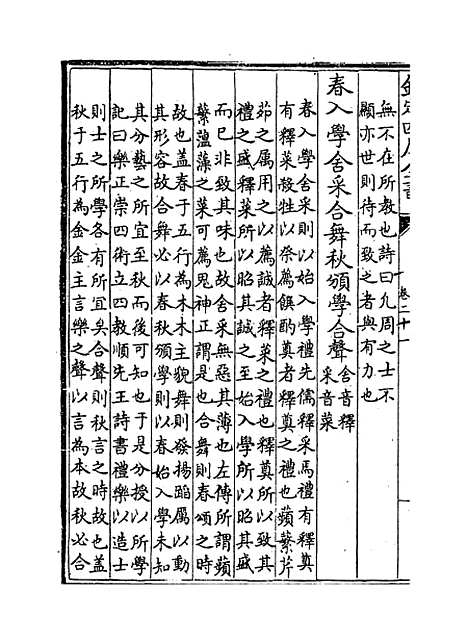 欽定四庫全書
卷二十一
無不在所教也詩曰凡周之士不
顯亦世則待而致之者與有力也
春入學舍采合舞秋頒學合聲舍音釋采音菜
春入學舍采則以始入學禮先儒釋采焉禮有釋奠
有釋菜殺牲以祭薦饌酌奠者釋奠之禮也蘋蘩芹
茆之屬用之以薦誠者釋菜之禮也釋奠所以致其
禮之盛釋菜所以昭其誠之至始入學所以昭其誠
而已非致其味也故舍采無惡其薄也左傳所謂蘋
蘩薀藻之菜可薦鬼神正謂是也合舞則春頌之時
故也蓋春于五行為木木主貌舞則發揚蹈厲以動
其形容故合舞必以春秋頒學則以春始入學未知
其分藝之所宜至秋而後可知也于是分授以所學
記曰樂正崇四術立四教順先王詩書禮樂以造士
則士之所學各有所宜矣合聲則秋言之時故也蓋
秋于五行為金金主言樂之聲以言為本故秋必合